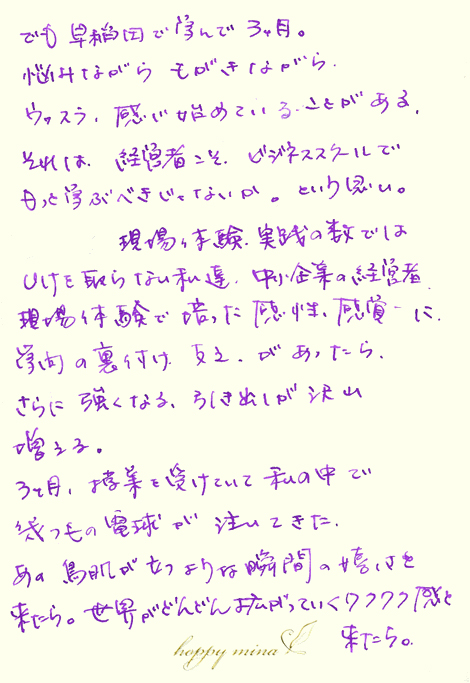 でも早稲田で学んで3ヶ月。
悩みながら もがきながら、
ウッスラ、感じ始めていることがある。
それは、経営者こそ、ビジネススクールで
もっと学ぶべきじゃないか。という思い。
現場体験、実践の数では
ひけを取らない私達、中小企業の経営者。
現場体験で培った感性、感覚に、
学問の裏付け 支え、があったら、
さらに強くなる、引き出しが沢山
増える。
3ヶ月、授業を受けていて私の中で
幾つもの電球が 注いてきた。
あの鳥肌が立つような瞬間の嬉しさを
来たら。世界がどんどん広がっていくワクワク感と
来たら。
happy mina